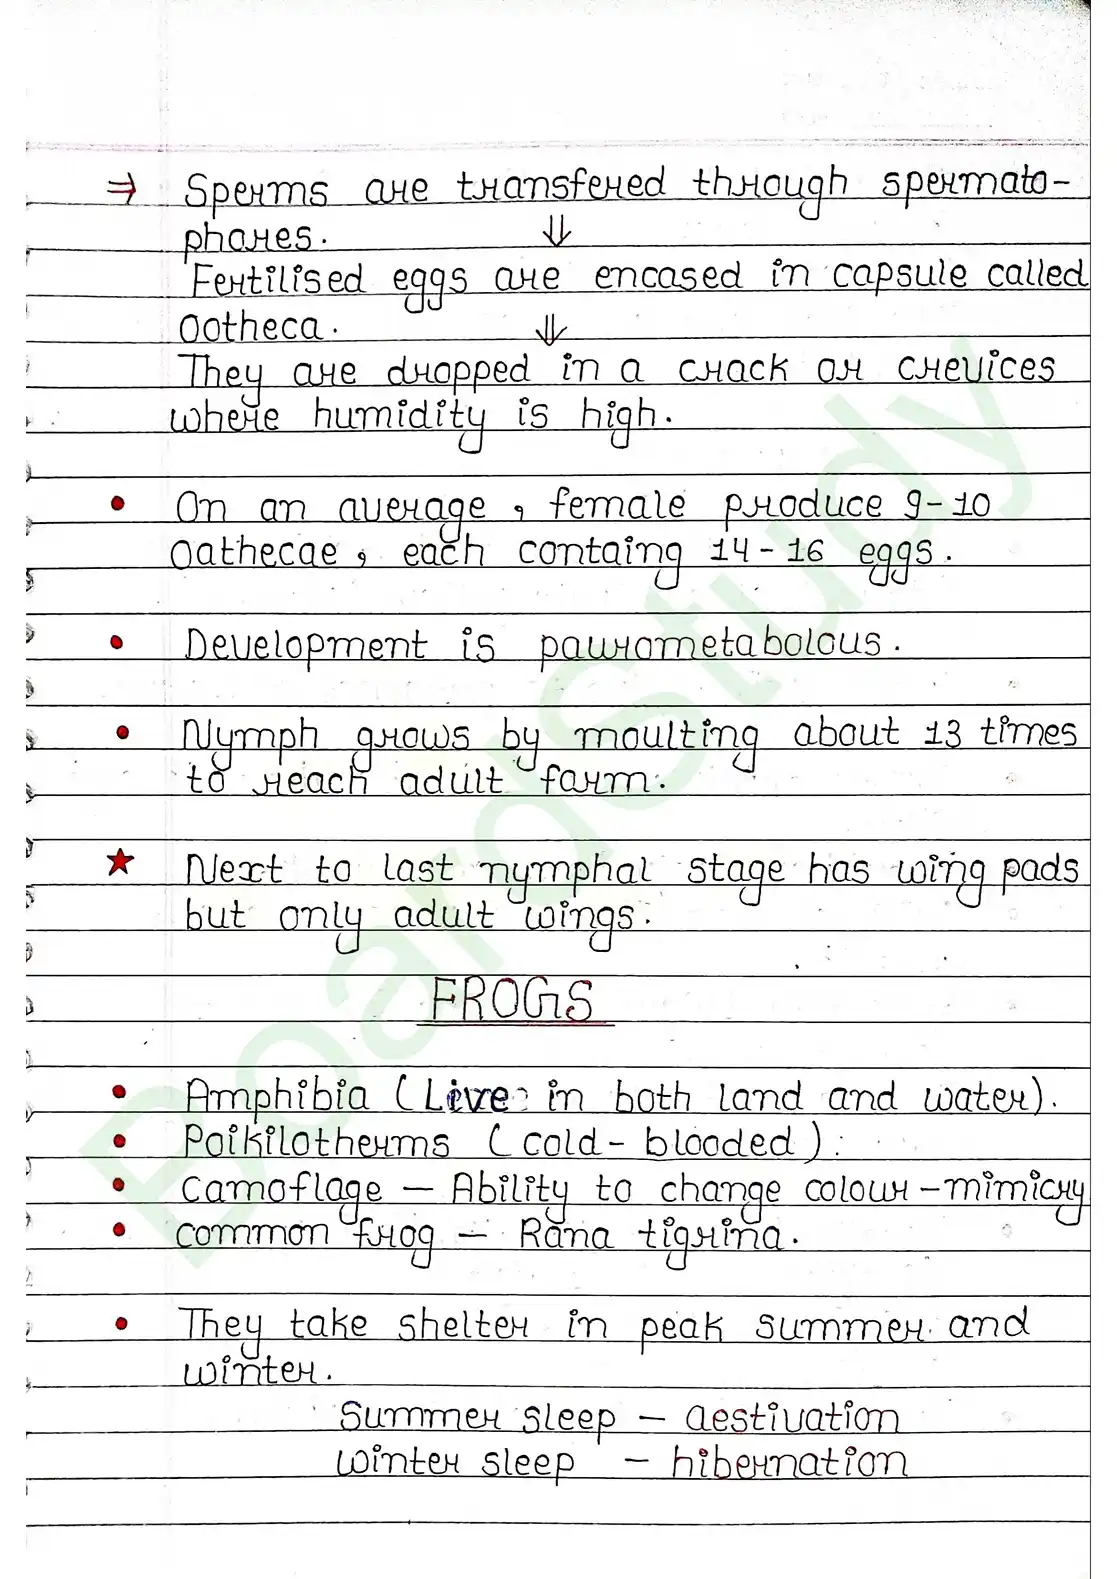 ⇒ Sperms are transfered through spermato-
phores.
⇓
Fertilised eggs are encased in capsule called
Ootheca.
⇓
They are dropped in a crack or crevices
where humidity is high.
• On an average, female produce 9-10
Oathecae, each containg 14-16 eggs.
• Development is paurometabolous.
• Nymph grows by moulting about 13 times
to reach adult form.
★ Next to last nymphal stage has wing pads
but only adult wings.
FROGS
• Amphibia (Live in both land and water).
• Poikilotherms (cold-blooded).
• Camoflage — Ability to change colour-mimicry
• common frog — Rana tigrina.
• They take shelter in peak summer and
winter.
Summer sleep — aestivation
Winter sleep — hibernation
BoardStudy